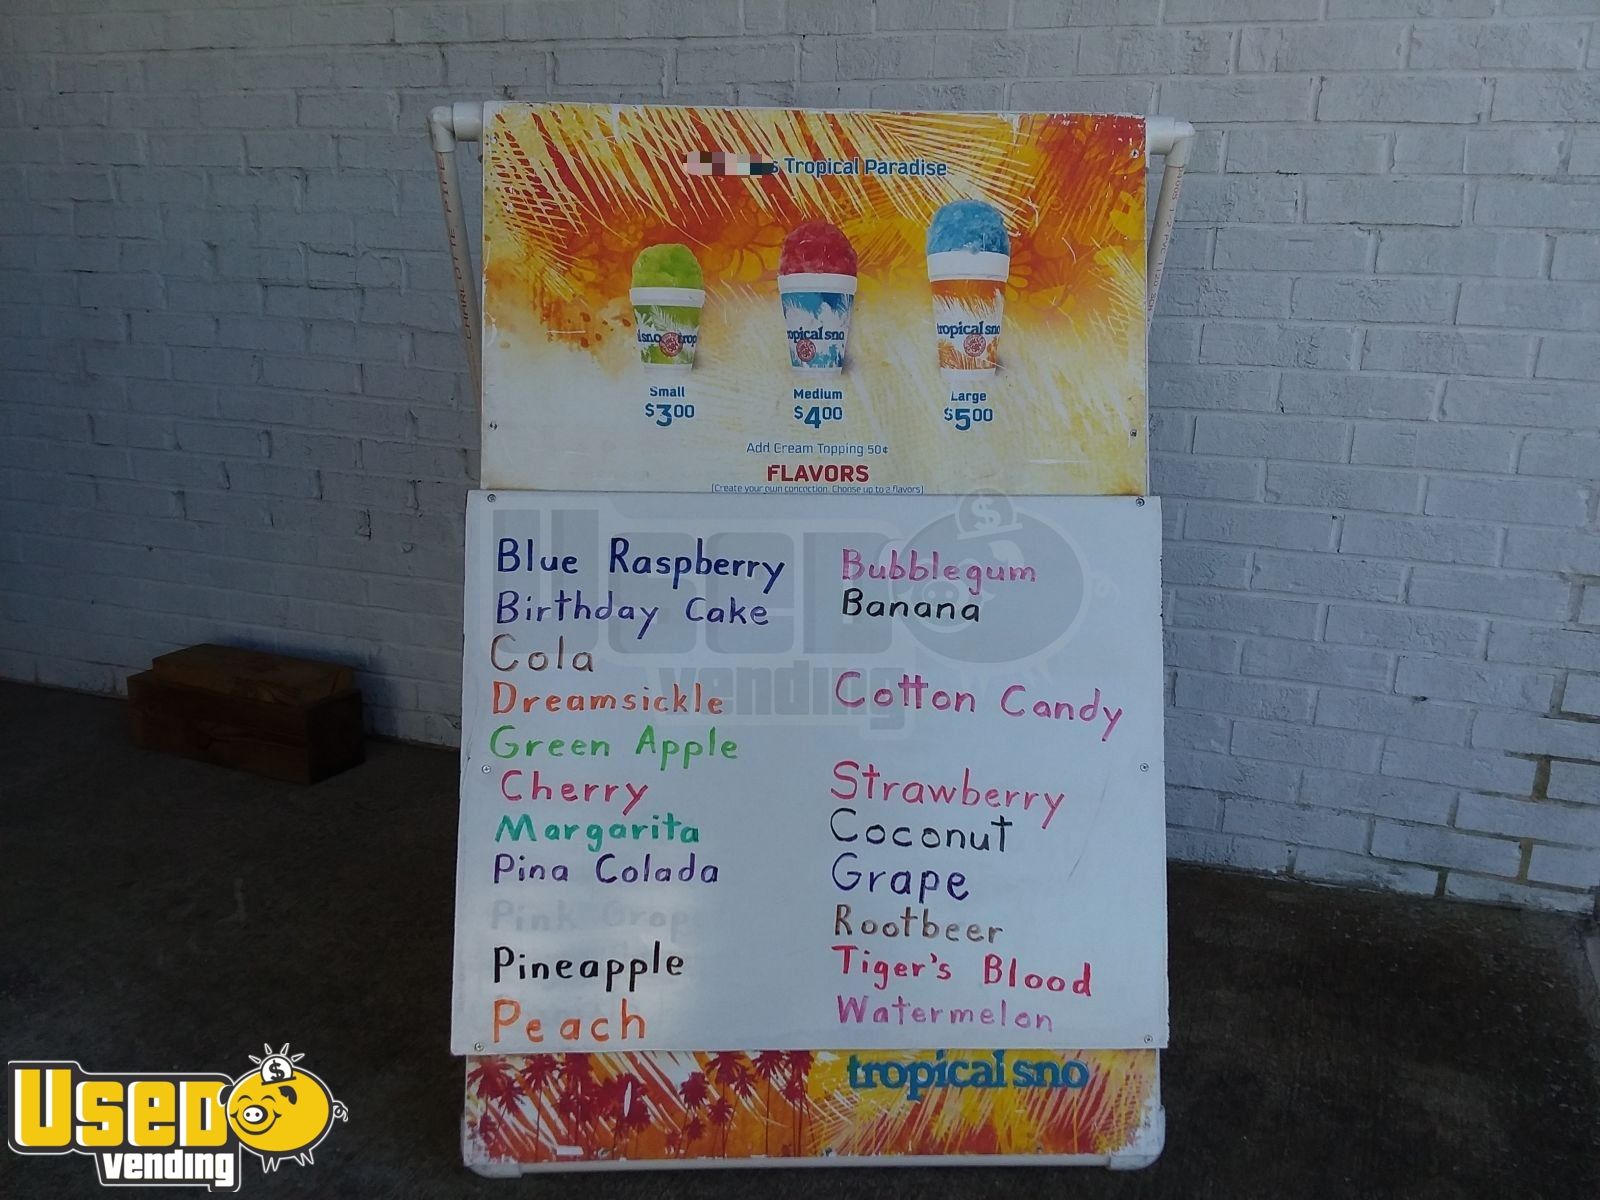 s Tropical Paradise
sno trop
ropical sno
tropical sno
Small
Medium
Large
$3.00
$4.00
$5.00
Add Cream Topping 50¢
FLAVORS
(Create your own concoction. Choose up to 2 flavors)
Blue Raspberry
Birthday Cake
Cola
Dreamsickle
Green Apple
Cherry
Margarita
Pina Colada
Pink Grape
Pineapple
Peach
Bubblegum
Banana
Cotton Candy
Strawberry
Coconut
Grape
Rootbeer
Tiger's Blood
Watermelon
tropical sno
CHARLOTTE PIPE
USED
vending
USED
vending